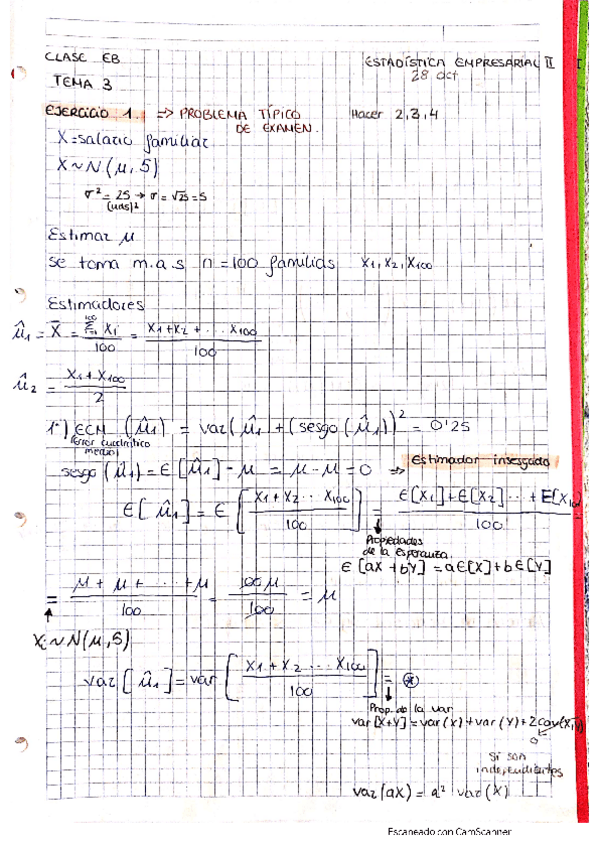 CLASE EB
ESTADÍSTICA EMPRESARIAL II
28 oct
TEMA 3
EJERCICIO 1. => PROBLEMA TÍPICO DE EXAMEN.
Hacer 2,3,4
X=salario familiar
X~N(μ,5)
σ² = 25 → σ = √25 = 5
(uds)²
Estimar μ
se toma m.a.s n=100 familias X₁, X₂, X₁₀₀
Estimadores
μ̂₁ = X̄ = Σ Xi / 100 = X₁+X₂+...X₁₀₀ / 100
μ̂₂ = X₁+X₁₀₀ / 2
1º) ECM (μ̂₁) = var(μ̂₁)+(sesgo(μ̂₁))² = 0'25
(error cuadrático medio)
sesgo (μ̂₁) = E[μ̂₁] - μ = μ - μ = 0 => Estimador insesgado
E[μ̂₁] = E[X₁+X₂...X₁₀₀ / 100] = E[X₁]+E[X₂]...+E[X₁₀₀] / 100
Propiedades de la Esperanza.
E[aX+bY] = aE[X]+bE[Y]
= μ+μ+...+μ / 100 = 100μ / 100 = μ
Xi~N(μ,5)
var[μ̂₁] = var[X₁+X₂...X₁₀₀ / 100] = ⊛
Prop. de la var
var[X+Y] = var(X)+var(Y)+2cov(X,Y)
0
Si son independientes
var(aX) = a² var(X)
Escaneado con CamScanner